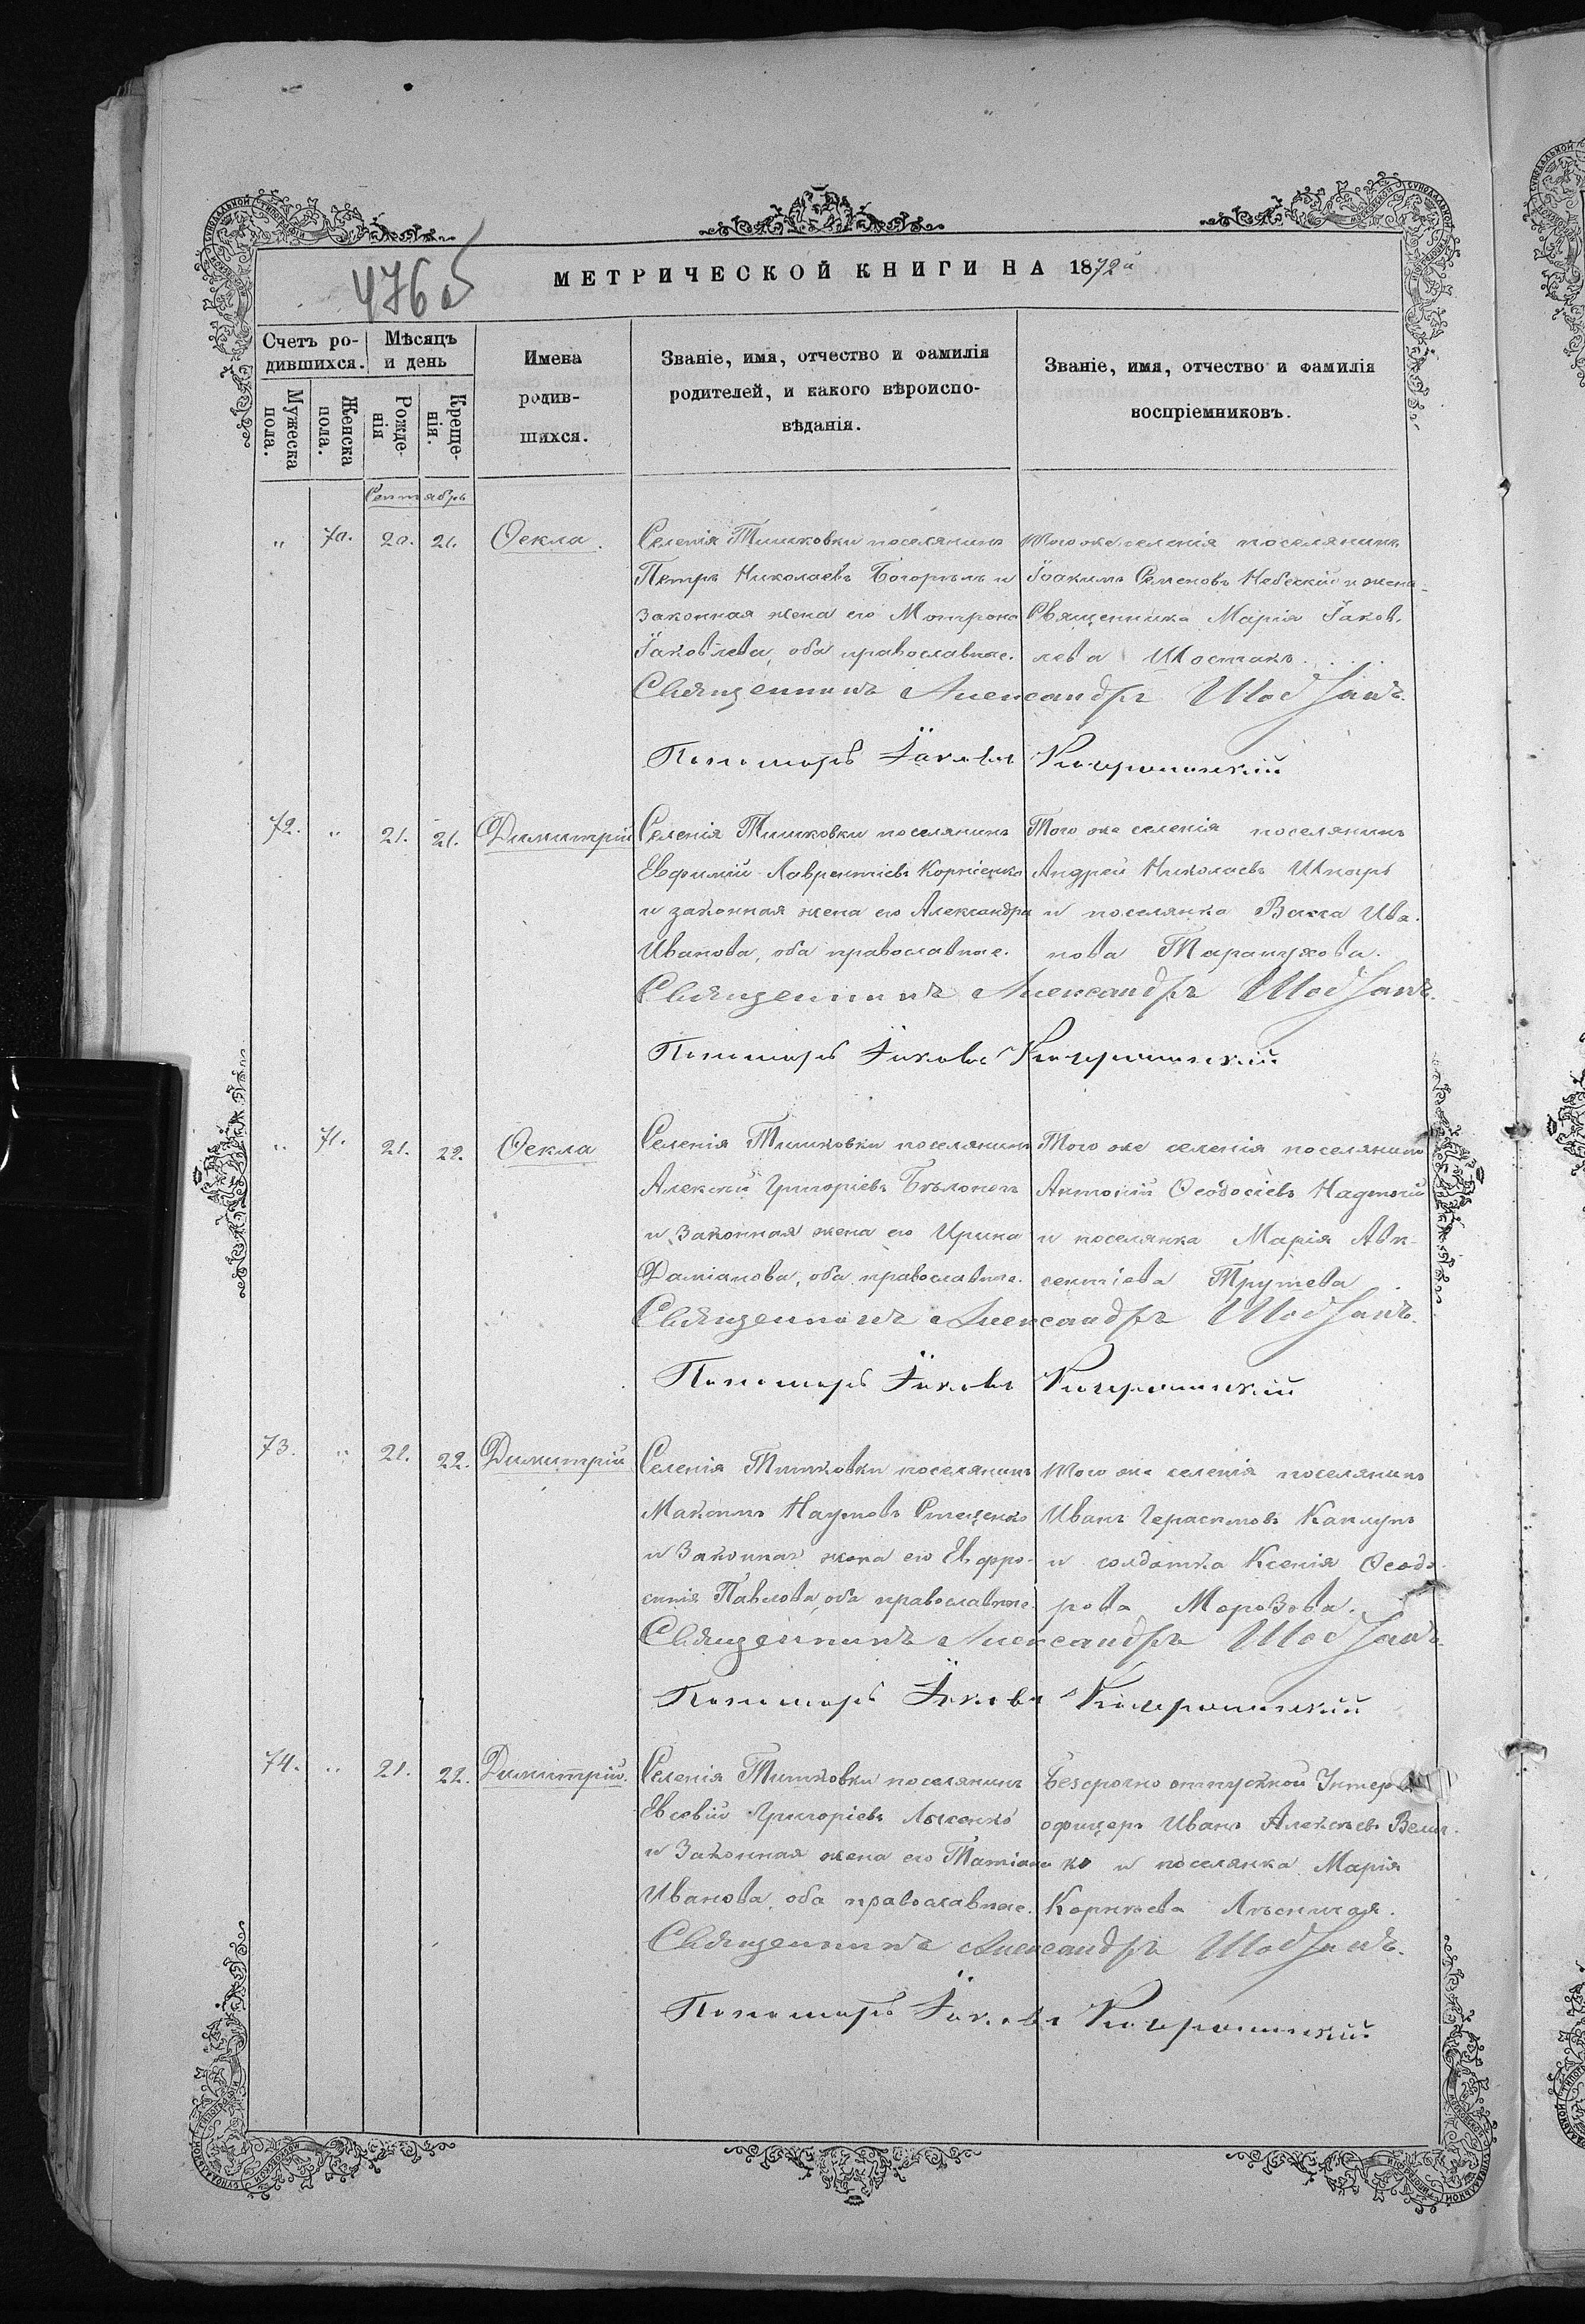 476 об
МЕТРИЧЕСКОЙ КНИГИ НА 1872й
Счетъ родившихся.
Мѣсяцъ и день
Имена родившихся.
Званіе, имя, отчество и фамилія родителей, и какого вѣроисповѣданія.
Званіе, имя, отчество и фамилія воспріемниковъ.
Мужеска пола.
Женска пола.
Рожденія
Крещенія.
Сентябрь
" 70. 20. 21. Ѳекла.
Селенія Тишковки поселянинъ
Петръ Николаевъ и
законная жена его Мотрона
Іаковлева, оба православные.
того же селенія поселянинъ
Іоакимъ Семеновъ Небескій и жена
Священника Марія Іаков.
лева Шостакъ....
Священникъ Александръ
Пономарь Іаковъ
72. " 21. 21. Димитрій
Селенія Тишковки поселянинъ
Евфимій Лаврентіевъ Корніенко
и законная жена его Александра
Иванова, оба православные.
Того же селенія поселянинъ
Андрей Николаевъ Шкаръ
и поселянка Васса Ива.
нова Таранухова.
Священникъ Александръ
Пономарь Іаковъ
" 71. 21. 22. Ѳекла
Селенія Тишковки поселянинъ
Алексій Григоріевъ Бѣлоконь
и законная жена его Ирина
Даміанова, оба православные.
Того же селенія поселянинъ
Антоній Ѳеодосіевъ
и поселянка Марія Авк-
сентіева
Священникъ Александръ
Пономарь Іаковъ
73. " 21. 22. Димитрій
Селенія Тишковки поселянинъ
Максимъ Наумовъ Стеценко
и Законная жена его Евфро-
синія Павлова, оба православные.
того же селенія поселянинъ
Иванъ Герасимовъ Каплунъ
и солдатка Ксенія Ѳеодо-
рова Морозова.
Священникъ Александръ
Пономарь Іаковъ
74. " 21. 22. Димитрій.
Селенія Тишковки поселянинъ
Евсевій Григоріевъ Лысенко
и Законная жена его Татіана
Иванова, оба православные.
Безсрочно отпускной Унтеръ
офицеръ Иванъ Алексѣевъ Велич-
ко и поселянка Марія
Корнѣева
Священникъ Александръ
Пономарь Іаковъ